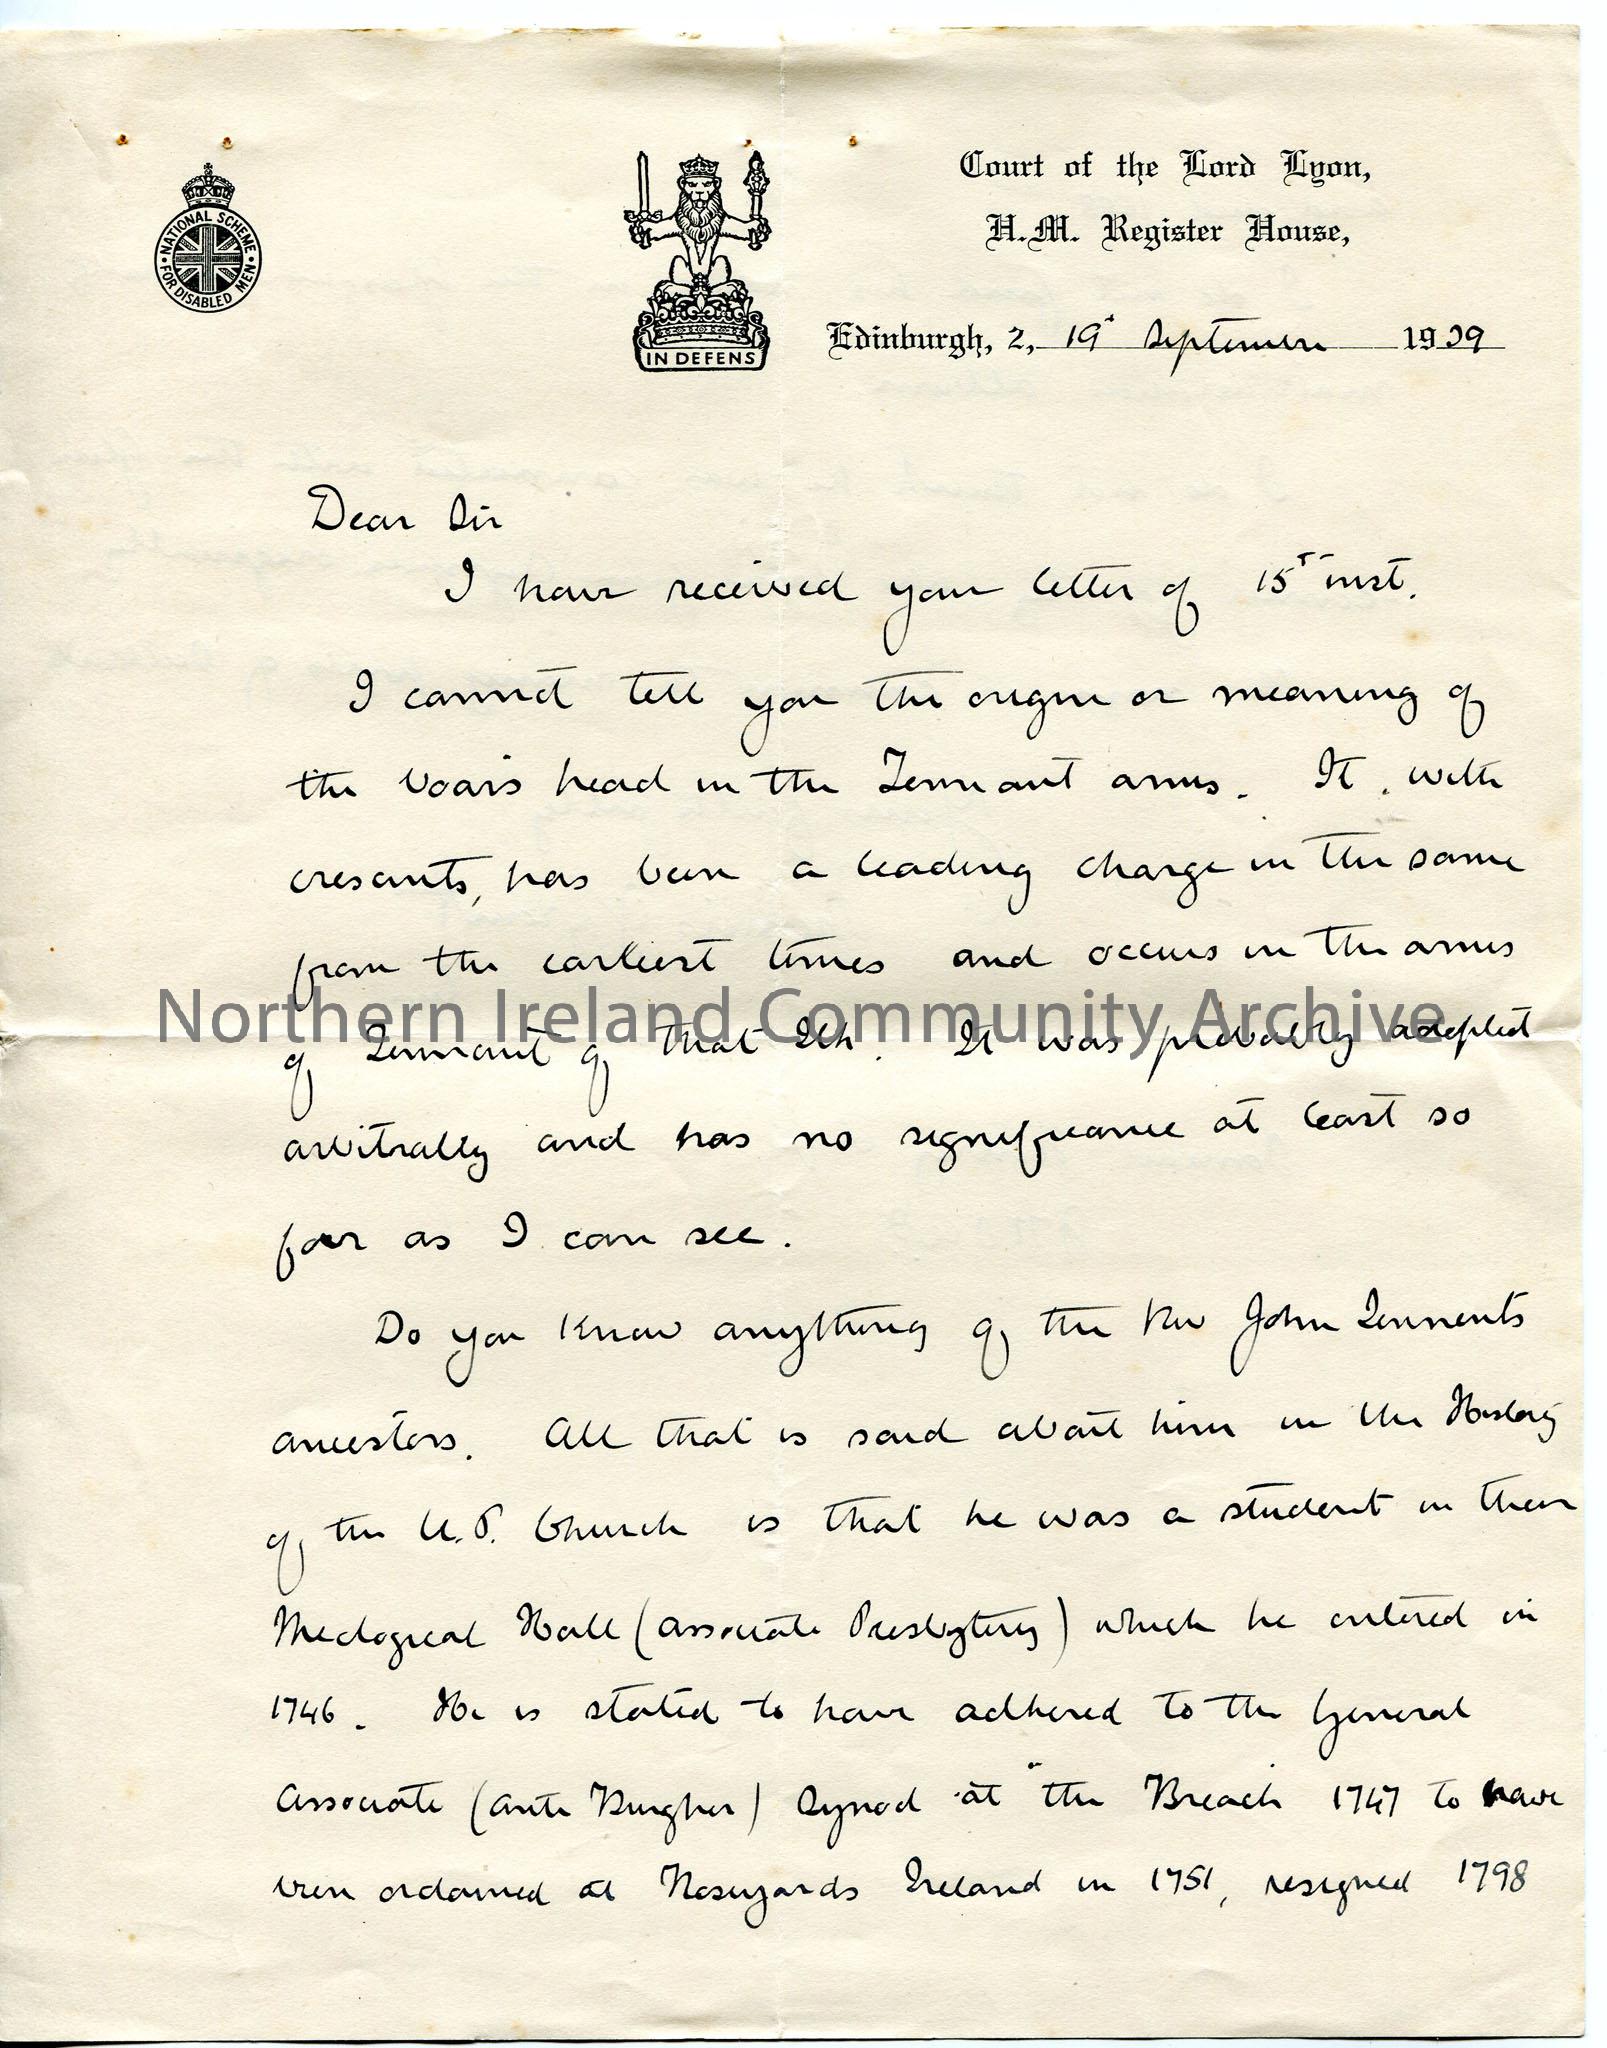 Court of the Lord Lyon,
H.M. Register House,
NATIONAL SCHEME
FOR DISABLED MEN
IN DEFENS
Edinburgh, 2, 19th September 1939
Dear Sir
I have received your letter of 15th inst.
I cannot tell you the origin or meaning of
the boars head in the Tennant arms. It, with
cresants, has been a leading charge in the same
from the earliest times and occurs in the arms
Northern Ireland Community Archive
of Tennant of that Ilk. It was probably adopted
arbitrally and has no significance at least so
far as I can see.
Do you know anything of the Rev John Tennents
ancestors. All that is said about him in the History
of the U.P. Church is that he was a student in their
Theological Hall (Associate Presbytery) which he entered in
1746. He is stated to have adhered to the General
Associate (Ante Burgher) Synod at "the Breach 1747 to have
been ordained at Roseyards Ireland in 1751, resigned 1798